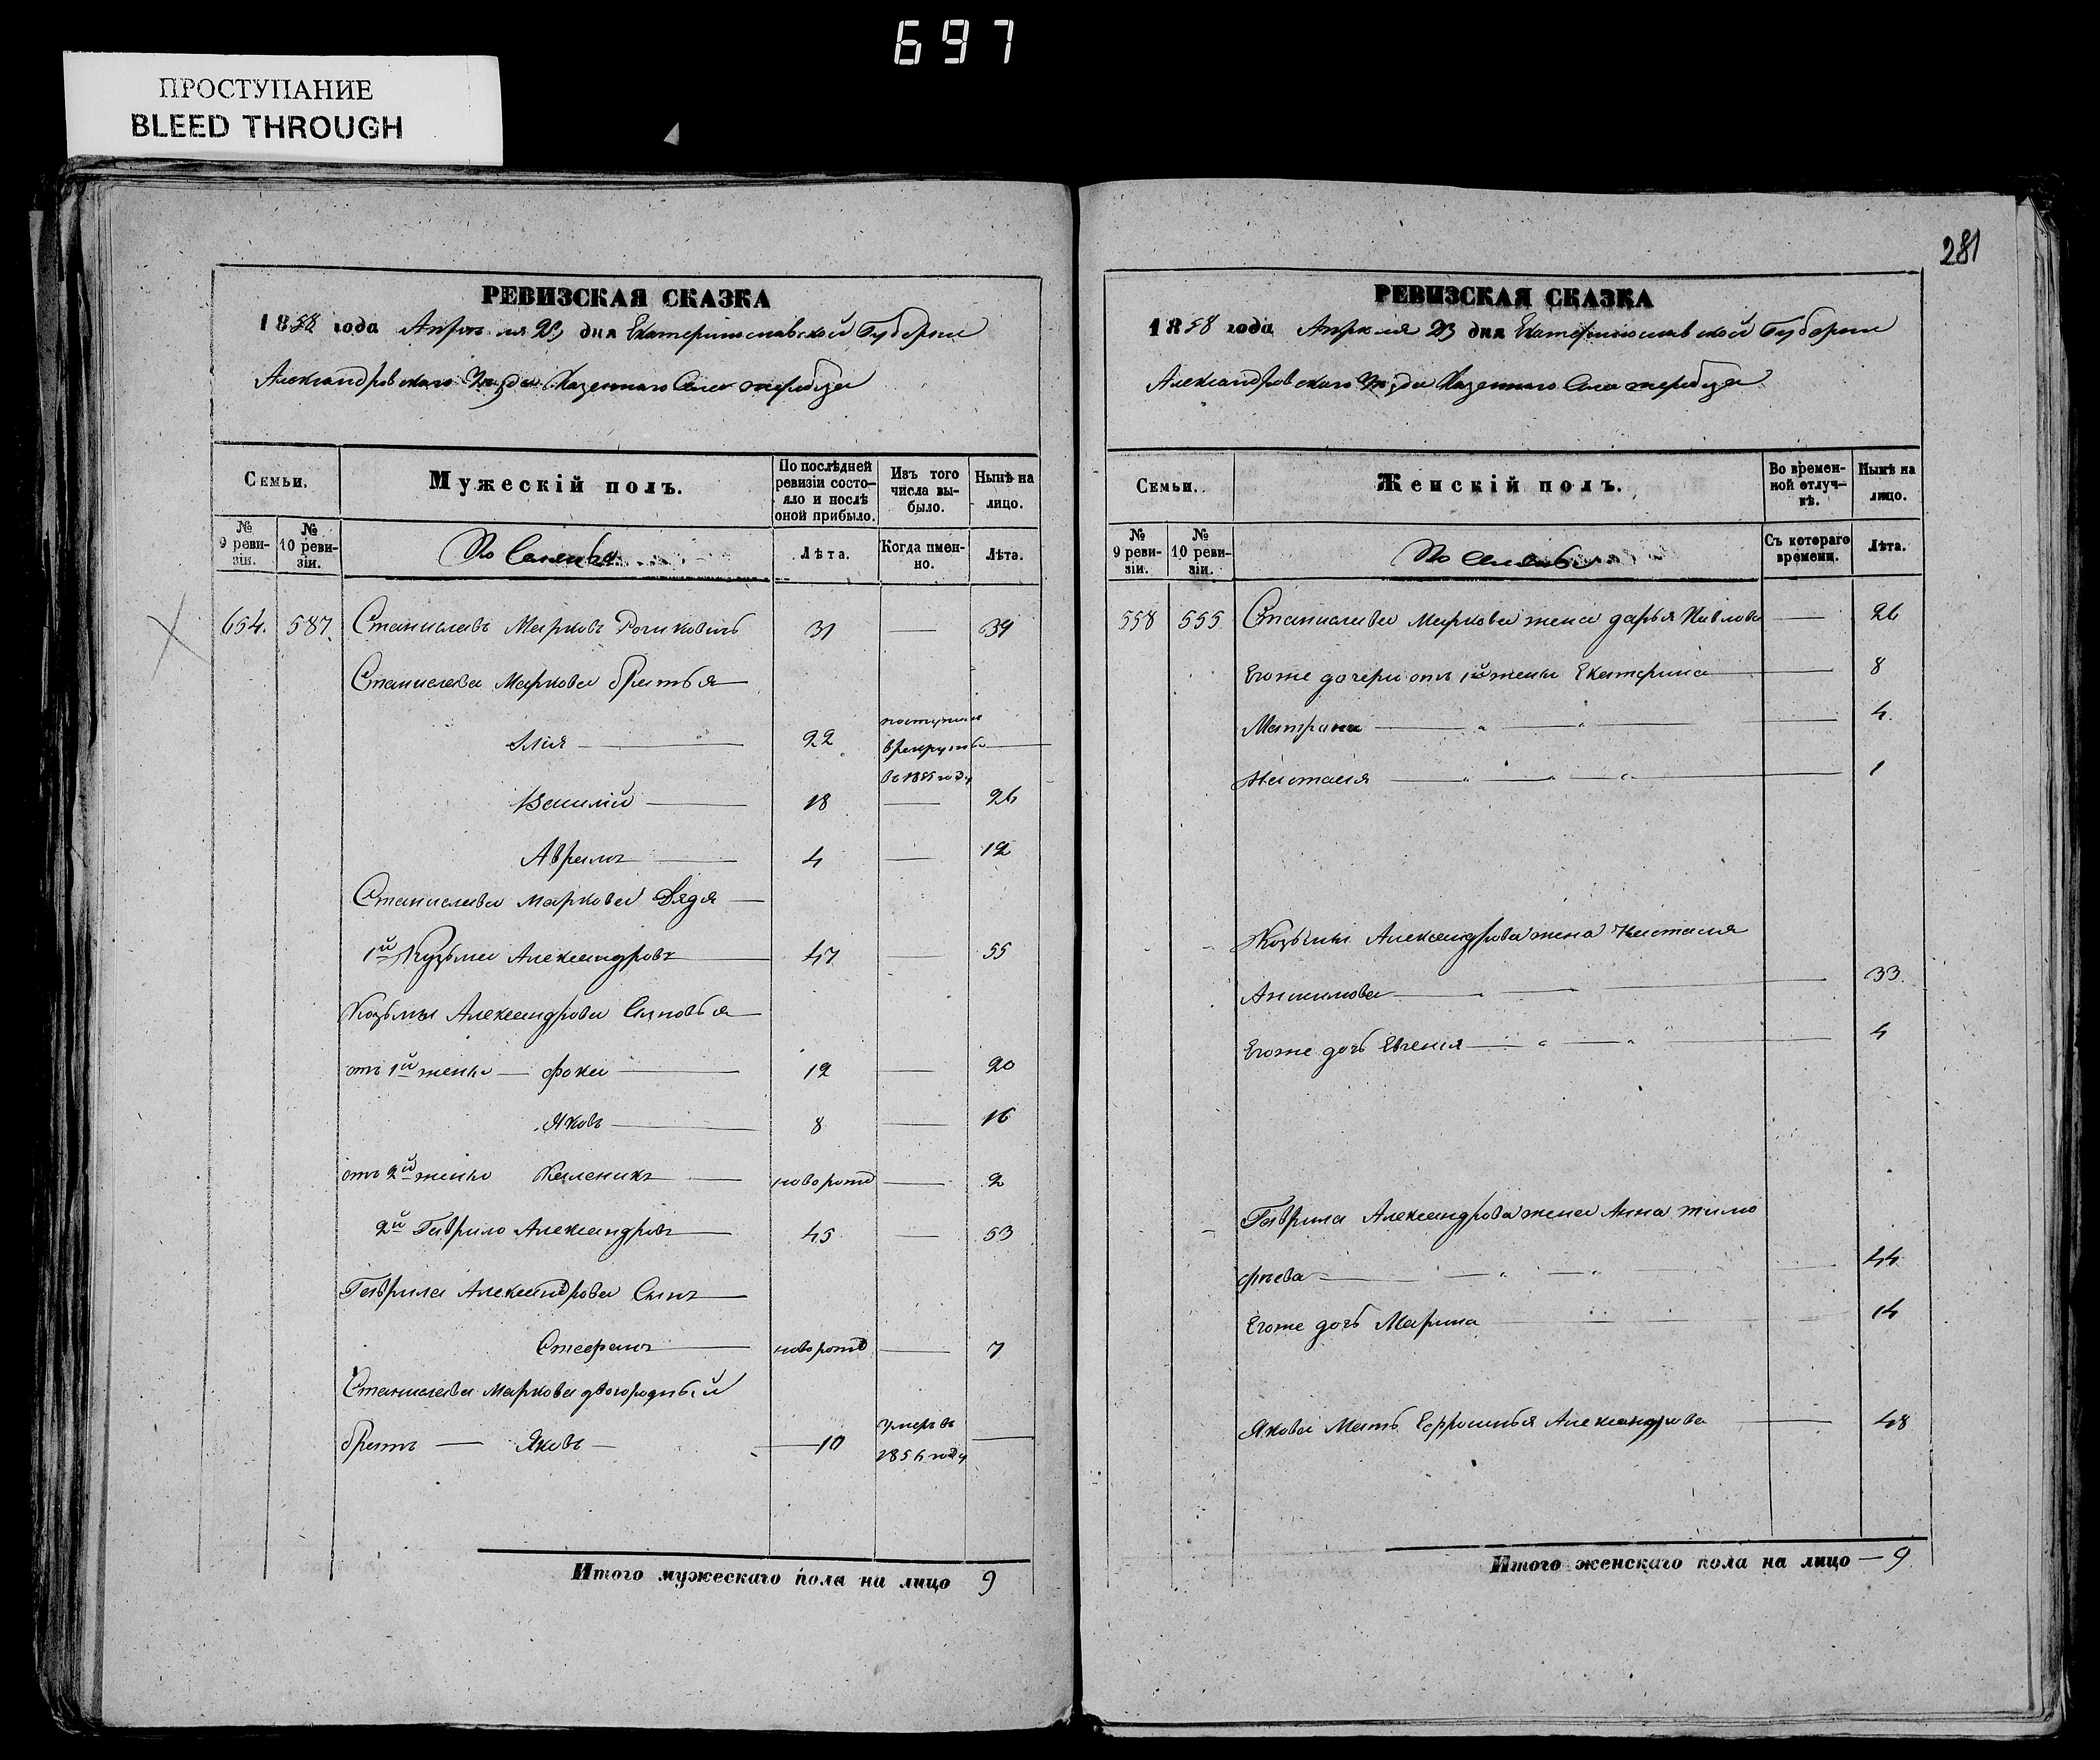 697
ПРОСТУПАНИЕ
BLEED THROUGH
РЕВИЗСКАЯ СКАЗКА
1858 года Апреля 23 дня Екатеринославской Губерніи
Александровскаго Уезда Казеннаго Села
Семьи.
Мужескій полъ.
По послѣдней ревизіи состояло и послѣ оной прибыло.
Изъ того числа выбыло.
Нынѣ на лицо.
№ 9 ревизіи.
№ 10 ревизіи.
Лѣта.
Когда именно.
Лѣта.
654. 587. Станиславъ Марковъ 31 — 39
Станислава Маркова братья
Илія 22 поступилъ в рекруты въ 1855 году
Василій 18 — 26
Аврамъ 4 — 12
Станислава Маркова Дядя
1й Кузьма Александровъ 47 — 55
Козьмы Александрова Сыновья
отъ 1й жены — Фока 12 — 20
Яковъ 8 — 16
отъ 2й жены Каленикъ новорожд — 2
2й Гаврило Александровъ 45 — 53
Гаврила Александрова Сынъ
Стефанъ новорожд — 7
Станислава Маркова двоюродный
братъ — Яковъ — 10 умеръ въ 1854 году
Итого мужескаго пола на лицо 9
281
РЕВИЗСКАЯ СКАЗКА
1858 года Апреля 23 дня Екатеринославской Губерніи
Александровскаго Уезда Казеннаго Села
Семьи.
Женскій полъ.
Во временной отлучкѣ.
Нынѣ на лицо.
№ 9 ревизіи.
№ 10 ревизіи.
Съ котораго времени.
Лѣта.
558 555 Станислава Маркова жена дарья Павлова — 26
Егоже дочери отъ 1й жены Екатерина 8
Матрона 4
Настасія 1
Козьмы Александрова жена Настасія
Анисимова 33
Егоже дочь Евгенія 4
Гаврила Александрова жена Анна тимо
фѣева 44
Егоже дочь Марина 14
Якова Мать Ефросинья Александрова — 48
Итого женскаго пола на лицо — 9